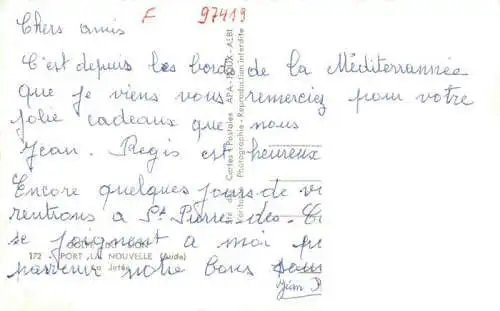 F 97419
Chers amis
C'est depuis les bords de la Méditerrannée
que je viens vous remerciez pour votre
jolie cadeaux que nous
Jean. Regis est heureux
Encore quelques jours de vi
rentrons à St Pierre des
se joignent a moi
parvenir notre bons
Jean
172 - PORT LA NOUVELLE (Aude)
La Jetée
Cartes Postales APA-POUX - ALBI
Photographie - Reproduction interdite